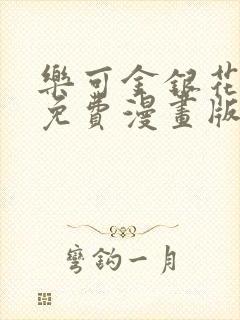 樂可金銀花
免費漫畫版
彎鈎一月